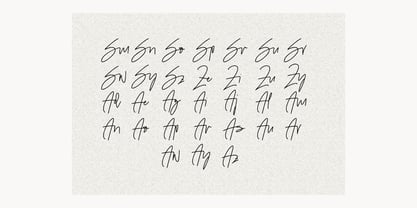 Sm Sn So Sp Sr Su Sv
Sw Sy Sz Ze Zi Zu Zy
Ad Ae Ag Ai Aj Al Am
An Ao Ap Ar As Au Av
Aw Ay Az